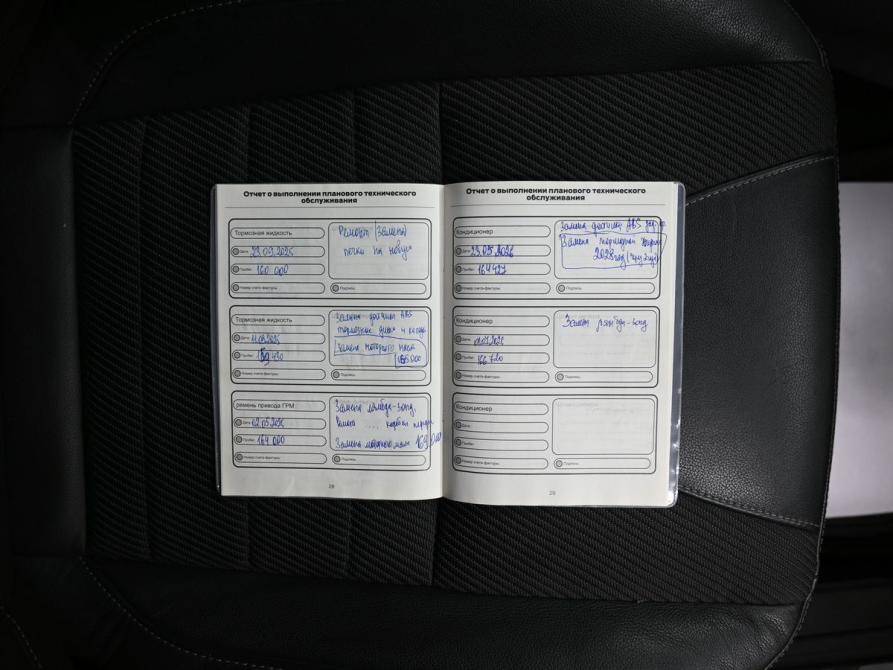 Отчет о выполнении планового технического
обслуживания
Тормозная жидкость
Дата
23.09.2025
Пробег
160 000
Номер счета-фактуры
Ремонт (Замена)
печки на новую
Подпись
Тормозная жидкость
Дата
Пробег
Номер счета-фактуры
Замена датчики ABS
тормозные диски и
Замена моторного масла
Подпись
ремень привода ГРМ
Дата
Пробег
164 000
Номер счета-фактуры
Замена лямбда-зонд,
Замена моторного масла 169 000
Подпись
28
Отчет о выполнении планового технического
обслуживания
Кондиционер
Дата
23.05.2026
Пробег
164 427
Номер счета-фактуры
Замена датчики ABS
Замена тормозной
2028 год (через 2 года)
Подпись
Кондиционер
Дата
Пробег
166 720
Номер счета-фактуры
Замена лямбда-зонд
Подпись
Кондиционер
Дата
Пробег
Номер счета-фактуры
Подпись
29